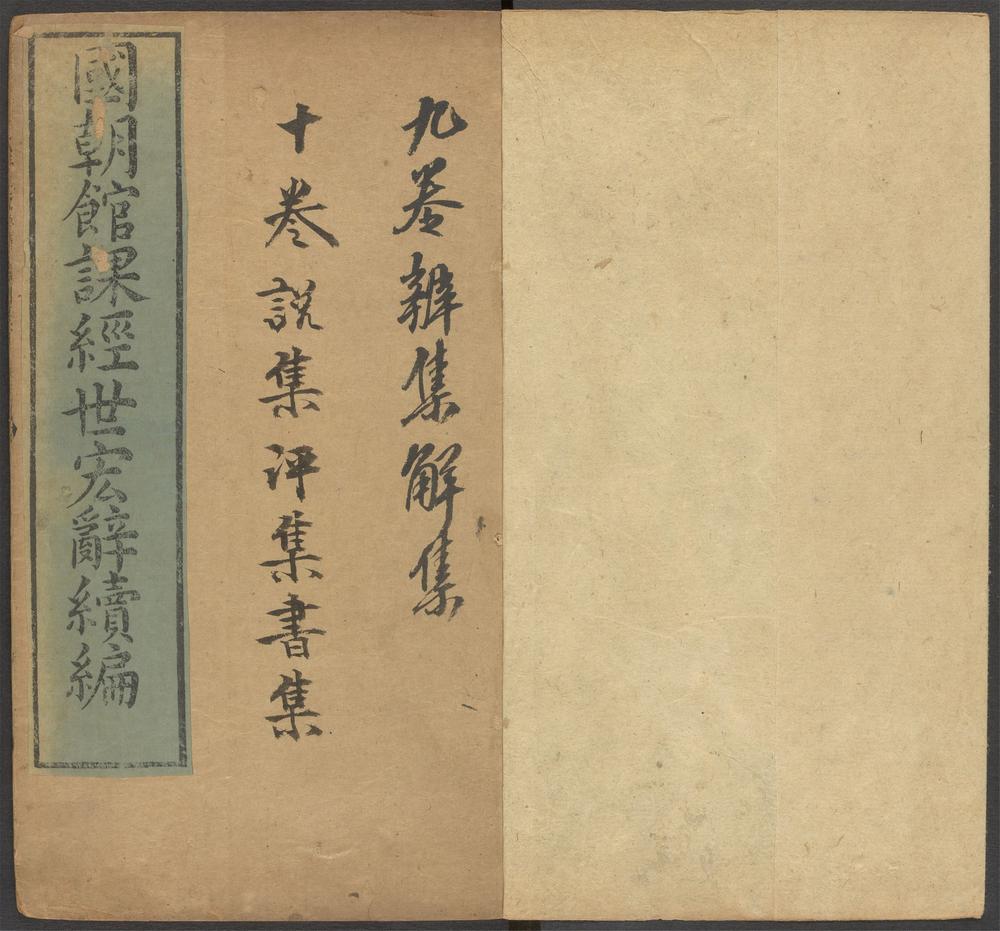 九巻辨集解集
十巻說集評集書集
國朝館課經世宏辭續編